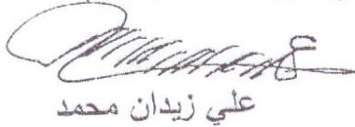 علي زيدان محمد